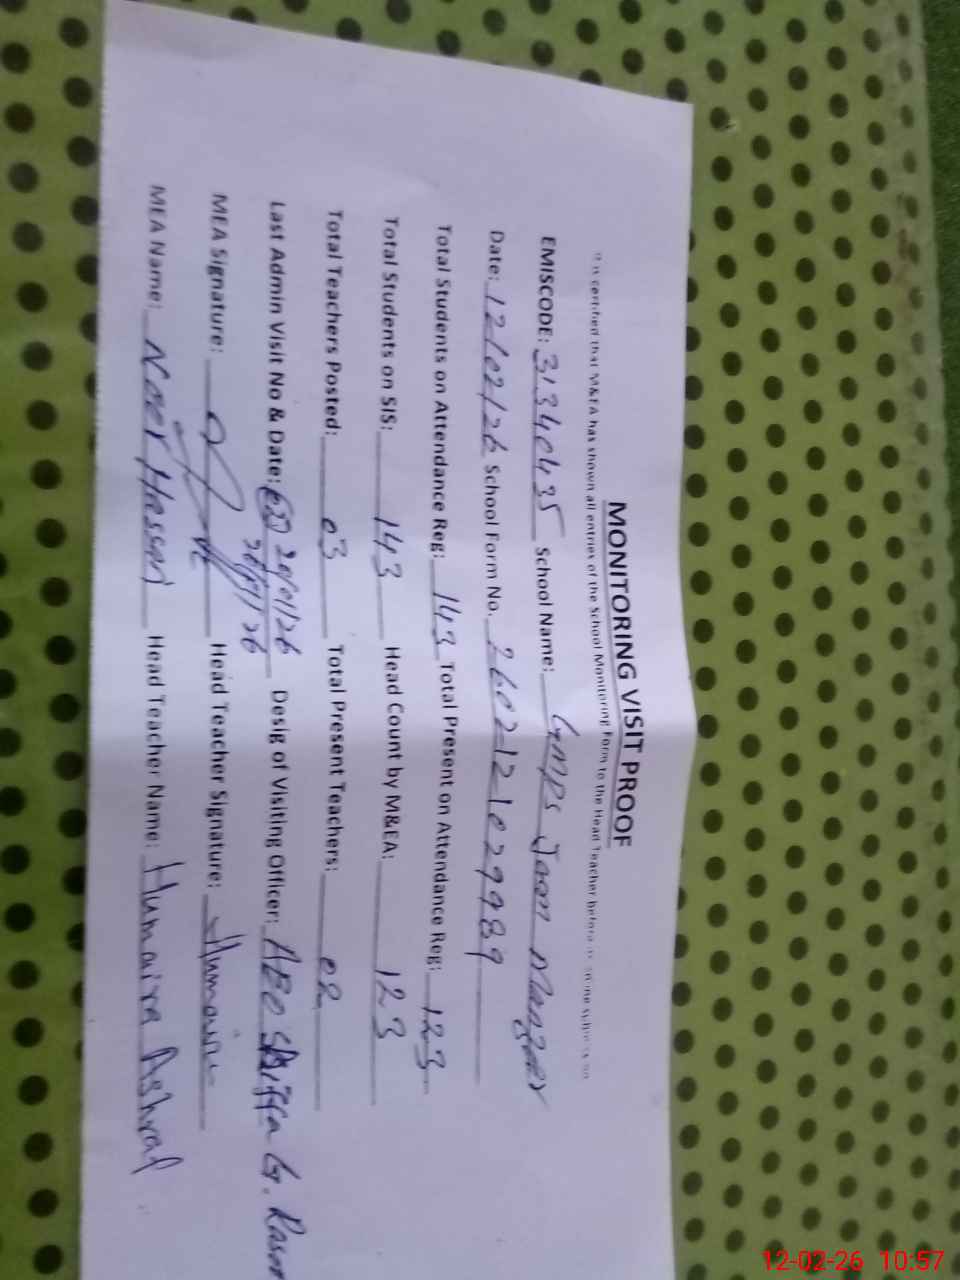 MONITORING VISIT PROOF
It is certified that M&EA has shown all entries of the School Monitoring Form to the Head Teacher before
EMISCODE: 31340435 School Name: GMPS Jaam Manzoor
Date: 12/02/26 School Form No. 2602121029989
Total Students on Attendance Reg: 143 Total Present on Attendance Reg: 123
Total Students on SIS: 143 Head Count by M&EA: 123
Total Teachers Posted: 03 Total Present Teachers: 02
Last Admin Visit No & Date: 20/01/26 Desig of Visiting Officer: AEO G. Rasool
26/01/26
MEA Signature: Head Teacher Signature: Humaira
MEA Name: Noor Hassan Head Teacher Name: Humaira Ashraf
12-02-26 10:57